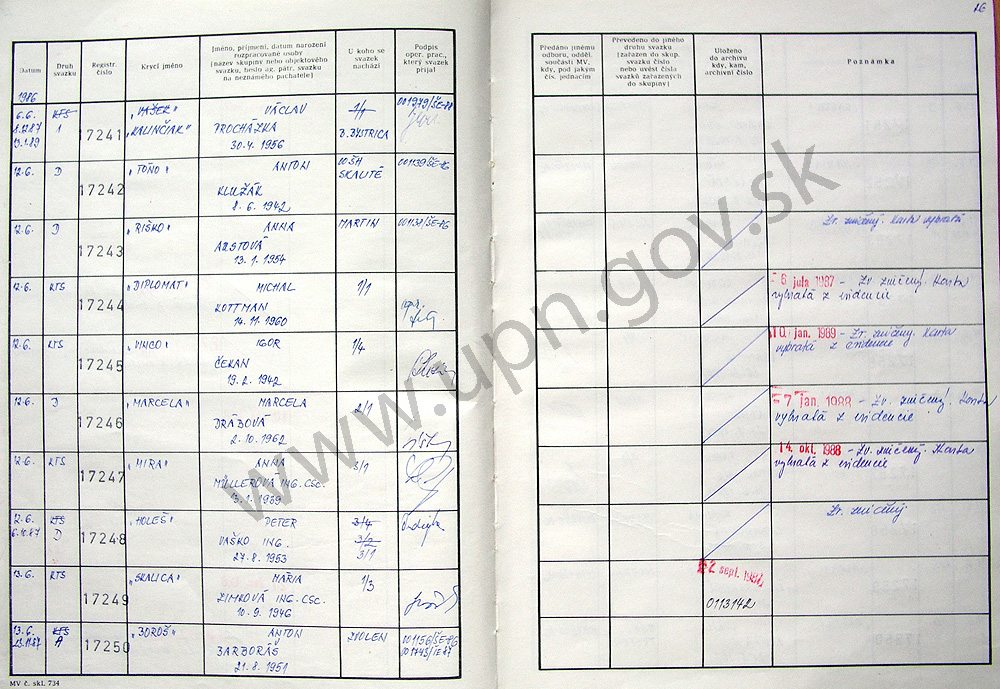 16
Datum
Druh svazku
Registr. číslo
Krycí jméno
Jméno, příjmení, datum narození rozpracované osoby (název skupiny nebo objektového svazku, heslo ag. pátr. svazku na neznámého pachatele)
U koho se svazek nachází
Podpis oper. prac., který svazek přijal
Předáno jinému odboru, odděl. součásti MV, kdy, pod jakým čís. jednacím
Převedeno do jiného druhu svazku (zařazen do skup. svazku číslo nebo uvést čísla svazků zařazených do skupiny)
Uloženo do archivu kdy, kam, archivní číslo
Poznámka
1986
6.6. KTS 17241 "VAŠEK" VÁCLAV 1/1
8.12.87 1 "KALINČIAK" PROCHÁZKA B. BYSTRICA
30.4.1956
12.6. D 17242 "TOŇO" ANTON
KLUŽÁK
8.6.1942
12.6. D 17243 "RIŠKO" ANNA MARTIN
13.1.1954
Zv. zničený. Karta vybratá
12.6. KTS 17244 "DIPLOMAT" MICHAL 1/1
KOTTMAN
14.11.1960
- 6 júla 1987 - Zv. zničený. Karta
vybratá z evidencie
12.6. KTS 17245 "VINCO" IGOR 1/4
ČEKAN
19.2.1942
10. jan. 1989 - Zv. zničený. Karta
vybratá z evidencie
12.6. D 17246 "MARCELA" MARCELA 2/1
DRÁBOVÁ
2.10.1962
- 7 jan. 1988 - Zv. zničený. Karta
vybratá z evidencie
12.6. KTS 17247 "MIRA" ANNA 3/1
MÜLLEROVÁ ING. CSC.
14. okt. 1988 - Zv. zničený. Karta
vybratá z evidencie
12.6. KTS 17248 "HOLEŠ" PETER 3/4
D VAŠKO ING. 3/2
27.8.1953 3/1
Zv. zničený
13.6. KTS 17249 "SKALICA" MÁRIA 1/3
ZIMKOVÁ ING. CSC.
10.9.1946
- 2 sept. 1987
0113142
13.6. KTS 17250 "BOROŠ" ANTON ZVOLEN
A BARBORÁS
21.8.1951
MV č. skl. 734
www.upn.gov.sk